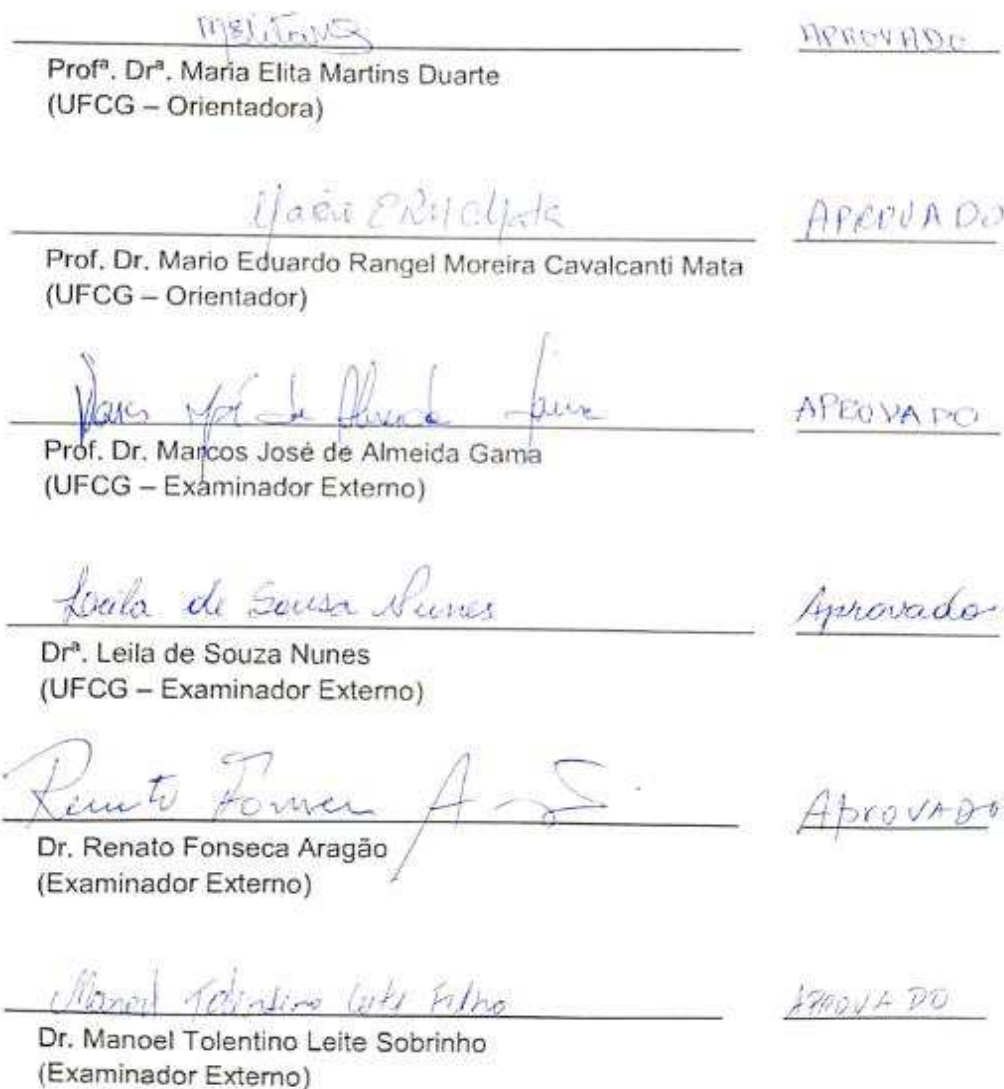 APROVADO
Profª. Drª. Maria Elita Martins Duarte
(UFCG – Orientadora)
APROVADO
Prof. Dr. Mario Eduardo Rangel Moreira Cavalcanti Mata
(UFCG – Orientador)
APROVADO
Prof. Dr. Marcos José de Almeida Gama
(UFCG – Examinador Externo)
Leila de Sousa Nunes Aprovado
Drª. Leila de Souza Nunes
(UFCG – Examinador Externo)
Renato A Aprovado
Dr. Renato Fonseca Aragão
(Examinador Externo)
Manoel Tolentino Leite Filho APROVADO
Dr. Manoel Tolentino Leite Sobrinho
(Examinador Externo)